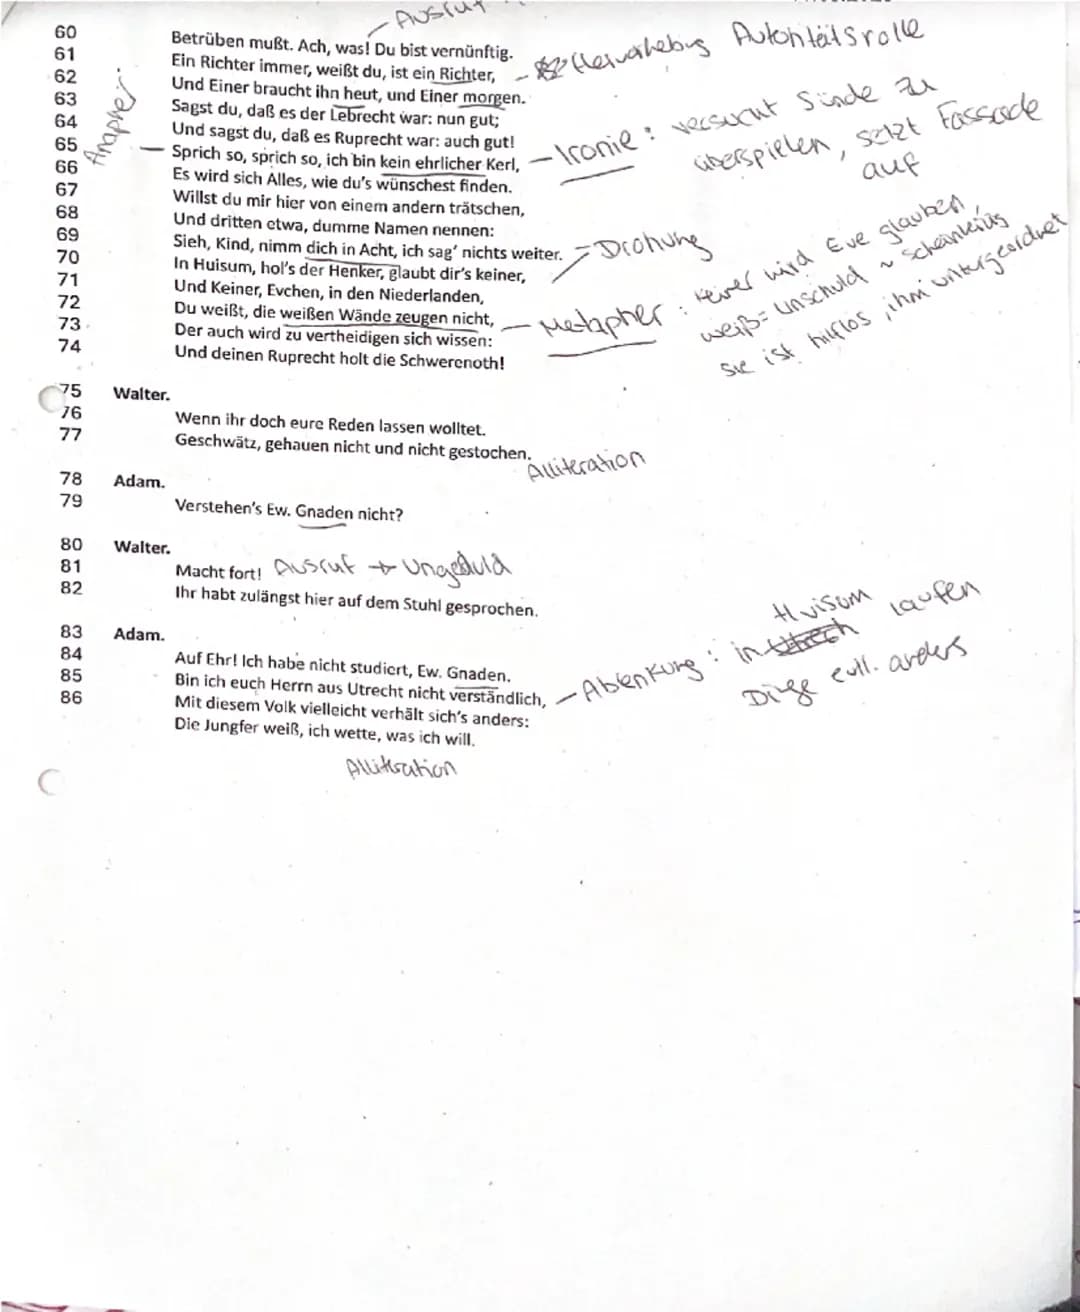 – Ausruf
60 Betrüben mußt. Ach, was! Du bist vernünftig.
61 Ein Richter immer, weißt du, ist ein Richter, – Hervorhebung Autoritätsrolle
62 Und Einer braucht ihn heut, und Einer morgen.
63 Sagst du, daß es der Lebrecht war: nun gut;
64 Und sagst du, daß es Ruprecht war: auch gut!
Anapher
65 Sprich so, sprich so, ich bin kein ehrlicher Kerl, – Ironie: versucht Sünde zu
überspielen, setzt Fassade
auf
66 Es wird sich Alles, wie du's wünschest finden.
67 Willst du mir hier von einem andern trätschen,
68 Und dritten etwa, dumme Namen nennen:
69 Sieh, Kind, nimm dich in Acht, ich sag' nichts weiter. – Drohung
70 In Huisum, hol's der Henker, glaubt dir's keiner,
71 Und Keiner, Evchen, in den Niederlanden,
72 Du weißt, die weißen Wände zeugen nicht, – Metapher: keiner wird Eve glauben,
weiß= Unschuld ~
sie ist hilflos, ihm untergeordnet
73 Der auch wird zu vertheidigen sich wissen:
74 Und deinen Ruprecht holt die Schwerenoth!
75 Walter.
76 Wenn ihr doch eure Reden lassen wolltet.
77 Geschwätz, gehauen nicht und nicht gestochen.
Alliteration
78 Adam.
79 Verstehen's Ew. Gnaden nicht?
80 Walter.
81 Macht fort! Ausruf → Ungeduld
82 Ihr habt zulängst hier auf dem Stuhl gesprochen.
83 Adam.
84 Auf Ehr! Ich habe nicht studiert, Ew. Gnaden.
85 Bin ich euch Herrn aus Utrecht nicht verständlich, – Ablenkung: in Huisum laufen
Dinge evtl. anders
86 Mit diesem Volk vielleicht verhält sich's anders:
Die Jungfer weiß, ich wette, was ich will.
Alliteration